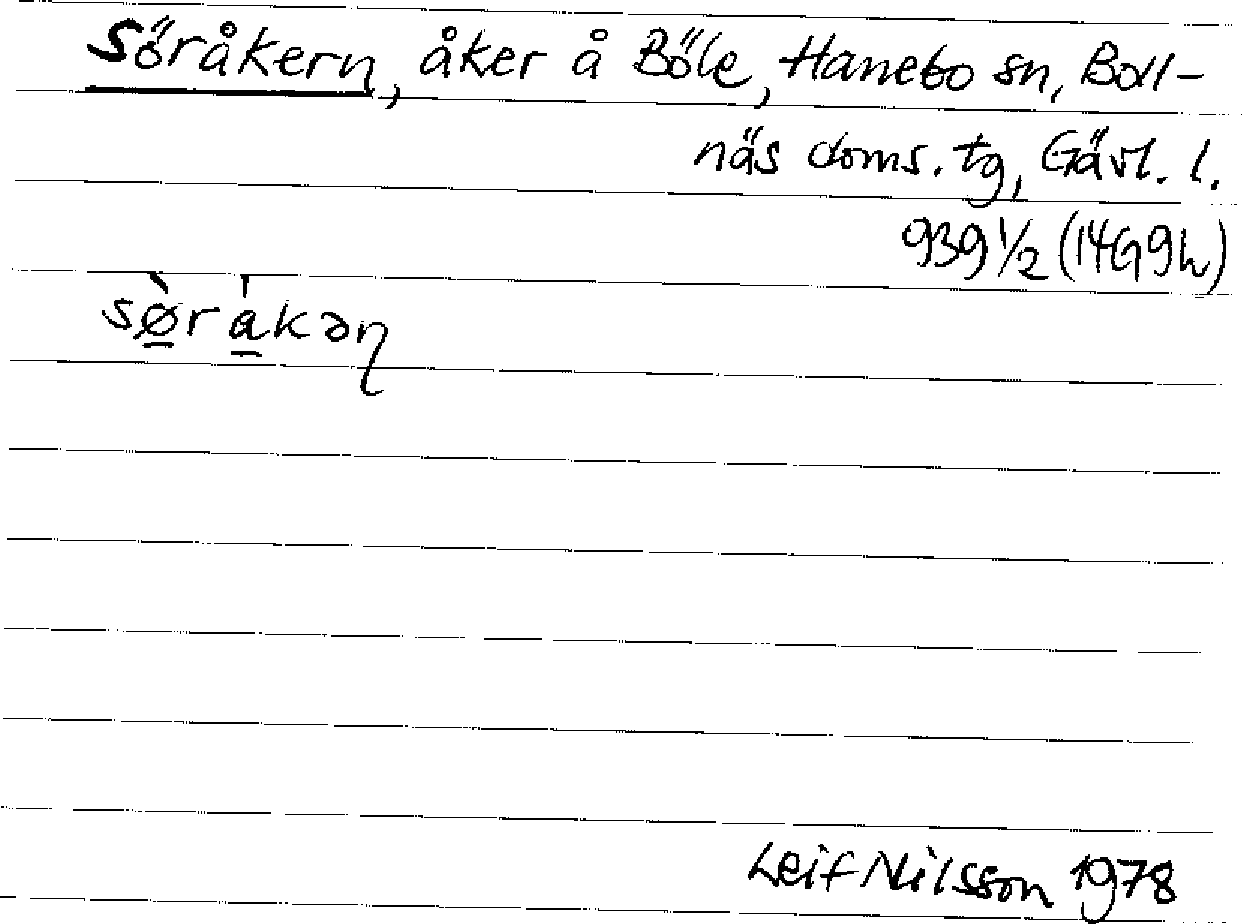 Söråkern, åker å Böle, Hanebo sn, Boll-
näs doms. tg, Gävl. l.
939 1/2 (14G9h)
sø̱̀ra̱̍kəɳ
Leif Nilsson 1978